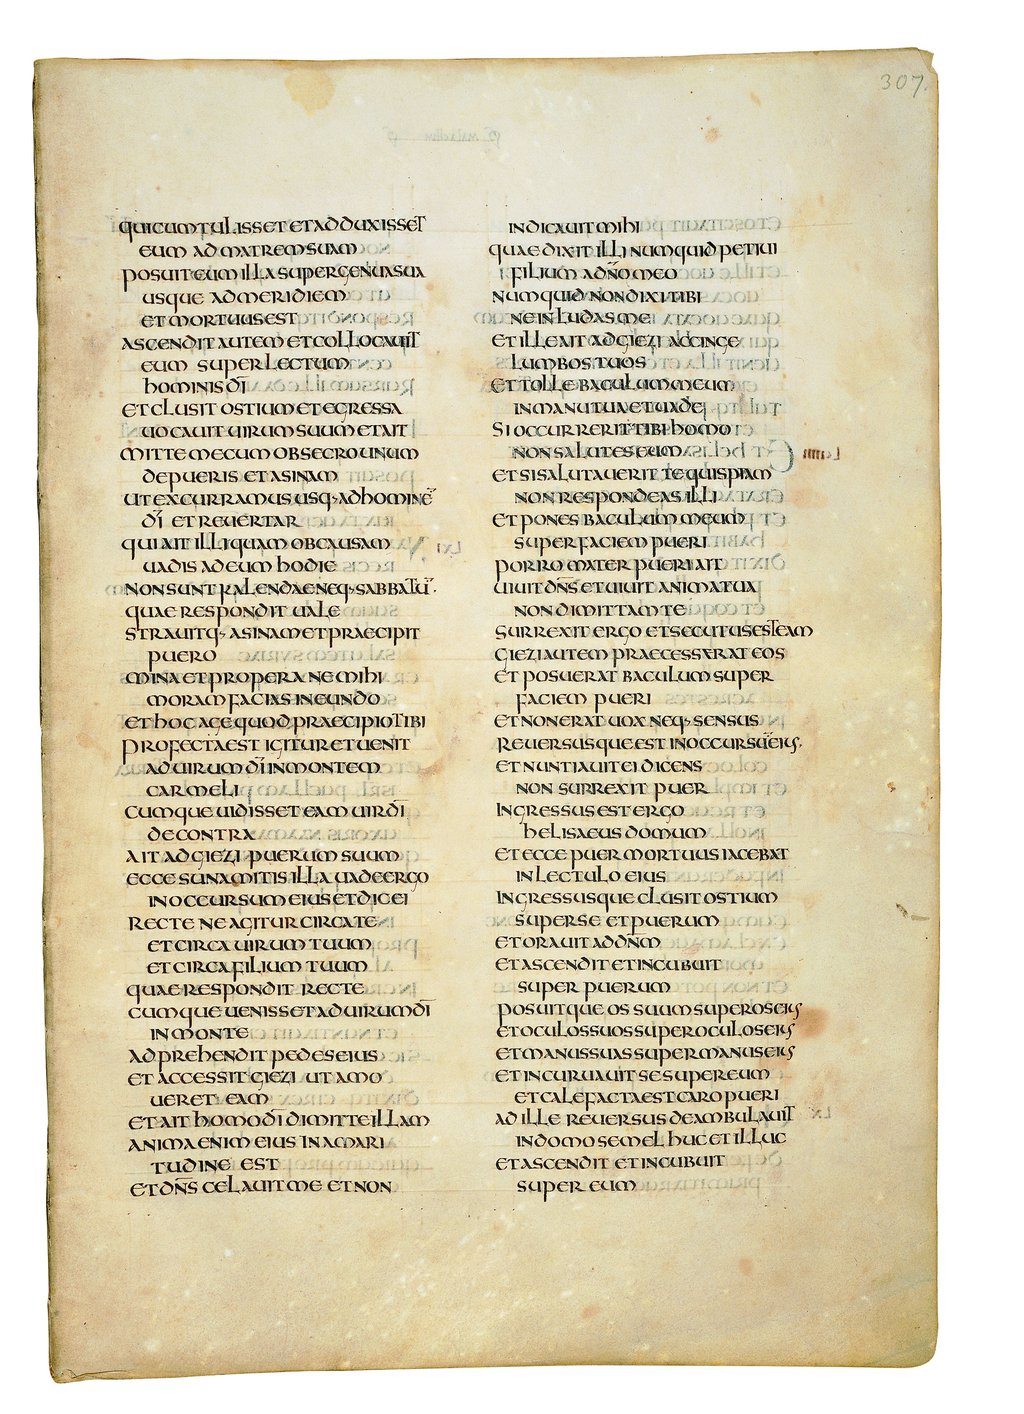 307.
QUI CUM TULISSET ET ADDUXISSET
EUM AD MATREM SUAM
POSUIT EUM ILLA SUPER GENUA SUA
USQUE AD MERIDIEM
ET MORTUUS EST
ASCENDIT AUTEM ET COLLOCAUIT
EUM SUPER LECTUM
HOMINIS DĪ
ET CLUSIT OSTIUM ET EGRESSA
UOCAUIT UIRUM SUUM ET AIT
MITTE MECUM OBSECRO UNUM
DE PUERIS ET ASINAM
UT EXCURRAM USQUE AD HOMINĒ
DĪ ET REUERTAR
QUI AIT ILLI QUAM OB CAUSAM
UADIS AD EUM HODIE
NON SUNT KALENDAE NEQ· SABBATŪ·
QUAE RESPONDIT UALE
STRAUITQ· ASINAM ET PRAECIPIT
PUERO
MINA ET PROPERA NE MIHI
MORAM FACIAS IN EUNDO
ET HOC AGE QUOD PRAECIPIO TIBI
PROFECTA EST IGITUR ET UENIT
AD UIRUM DĪ IN MONTEM
CARMELI
CUMQUE UIDISSET EAM UIR DĪ
DE CONTRA
AIT AD GIEZI PUERUM SUUM
ECCE SUNAMITIS ILLA UADE ERGO
IN OCCURSUM EIUS ET DIC EI
RECTE NE AGITUR CIRCA TE
ET CIRCA UIRUM TUUM
ET CIRCA FILIUM TUUM
QUAE RESPONDIT RECTE
CUMQUE UENISSET AD UIRUM DĪ
IN MONTE
ADPREHENDIT PEDES EIUS
ET ACCESSIT GIEZI UT AMO
UERET EAM
ET AIT HOMO DĪ DIMITTE ILLAM
ANIMA ENIM EIUS IN AMARI
TUDINE EST
ET DN̄S CELAUIT ME ET NON
INDICAUIT MIHI
QUAE DIXIT ILLI NUMQUID PETIUI
FILIUM A DN̄O MEO
NUMQUID NON DIXI TIBI
NE INLUDAS ME
ET ILLE AIT AD GIEZI ACCINGE
LUMBOS TUOS
ET TOLLE BACULUM MEUM
IN MANU TUA ET UADE
SI OCCURRERIT TIBI HOMO
NON SALUTES EUM
ET SI SALUTAUERIT TE QUISPIAM
NON RESPONDEAS ILLI
ET PONES BACULUM MEUM
SUPER FACIEM PUERI
PORRO MATER PUERI AIT
UIUIT DN̄S ET UIUIT ANIMA TUA
NON DIMITTAM TE
SURREXIT ERGO ET SECUTUS EST EAM
GIEZI AUTEM PRAECESSERAT EOS
ET POSUERAT BACULUM SUPER
FACIEM PUERI
ET NON ERAT UOX NEQ· SENSUS
REUERSUSQUE EST IN OCCURSŪ EIUS·
ET NUNTIAUIT EI DICENS
NON SURREXIT PUER
INGRESSUS EST ERGO
HELISAEUS DOMUM
ET ECCE PUER MORTUUS IACEBAT
IN LECTULO EIUS
INGRESSUSQUE CLUSIT OSTIUM
SUPER SE ET PUERUM
ET ORAUIT AD DN̄M
ET ASCENDIT ET INCUBUIT
SUPER PUERUM
POSUITQUE OS SUUM SUPER OS EIUS
ET OCULOS SUOS SUPER OCULOS EIUS
ET MANUS SUAS SUPER MANUS EIUS
ET INCURUAUIT SE SUPER EUM
ET CALEFACTA EST CARO PUERI
AD ILLE REUERSUS DEAMBULAUIT
IN DOMO SEMEL HUC ET ILLUC
ET ASCENDIT ET INCUBUIT
SUPER EUM